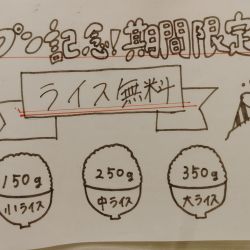 プン記念!期間限定
ライス無料
150g
250g
350g
小ライス
中ライス
大ライス